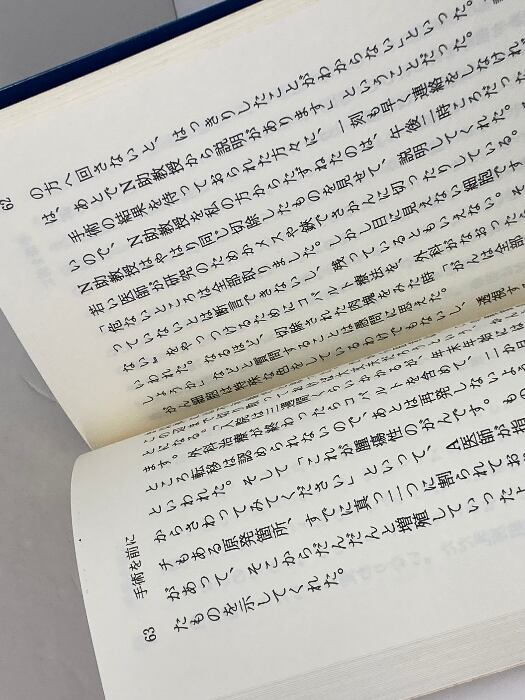 62
の方へ回さないと、はっきりしたことがわからない」といった。
は、あとでN助教授から説明があります」ということだった。
手術の結果を待っておられた方々に、一刻も早く連絡をしなけれ
いので、N助教授を私の方からたずねたのは、午後二時ごろだった
N助教授はやはり同じ切除したものを見せて、説明してくれた。
若い医師が研究のためかメスや鋏できかんに切ったりしている。
「危ないところは全部取りました。しかし目に見えない細胞です
っていないとは断言できないし、残っているともいえない。そ
ない」をやっつけるためにコバルト療法を、外科がなおった
いわれた。なるほど、切除された肉塊をみた時「がんは全部
しょうか」などと質問することは愚問に思えた。
がん細胞は特殊な色をしているわけでもないし、透視す
となる。「入院は三週間くらいかかるが、年末年始には
ます。外科治療が終わったらコバルトを含めて、二か月
ところ転移は認められないので、あとは再発しないよ
といわれた。そして「これが腫瘍性のがんです。もの
からさわってみてください」といって、A医師が指
チもある原発箇所、すでに真っ二つに割られてお
があって、そこからだんだんと増殖していったと
たものを示してくれた。
手術を前に
63